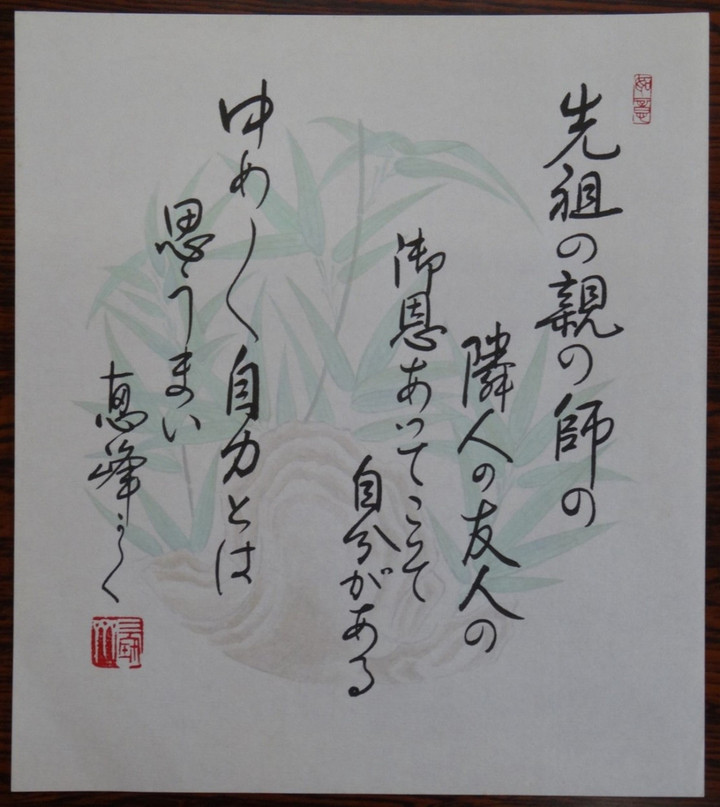 先祖の親の師の
隣人の友人の
御恩あってこそ
自分がある
ゆめ〱自力とは
思うまい
恵峰かく